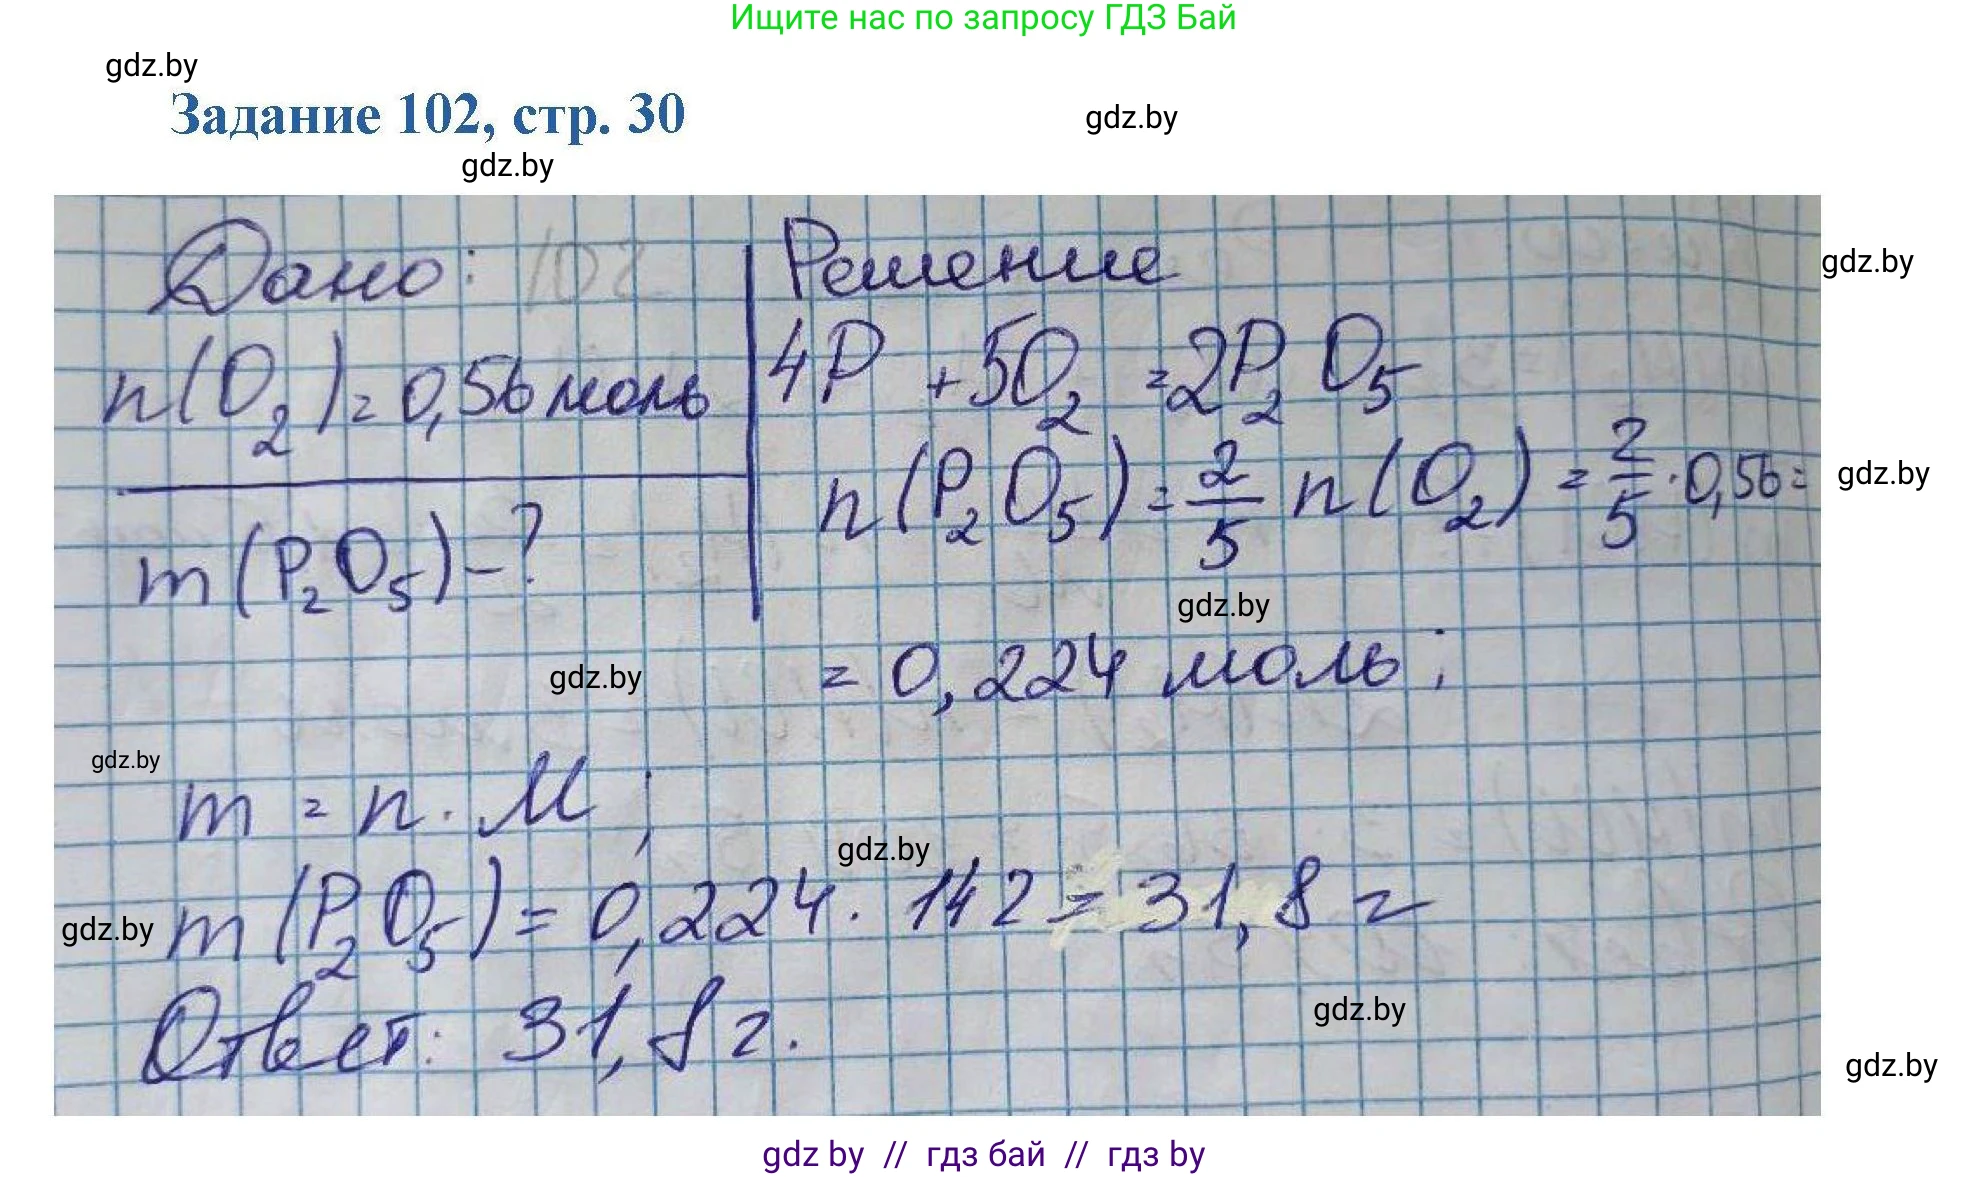 Ищите нас по запросу ГДЗ Бай
gdz.by
Задание 102, стр. 30
gdz.by
gdz.by
Дано: 102
Решение
gdz.by
n(O₂) = 0,56 моль
4P + 5O₂ = 2P₂O₅
n(P₂O₅) = 2/5 n(O₂) = 2/5 · 0,56 =
gdz.by
m(P₂O₅) - ?
gdz.by
= 0,224 моль;
gdz.by
gdz.by
m = n · M;
gdz.by
gdz.by
m(P₂O₅) = 0,224 · 142 = 31,8 г
Ответ: 31,8 г.
gdz.by
gdz.by
gdz by // гдз бай // гдз by